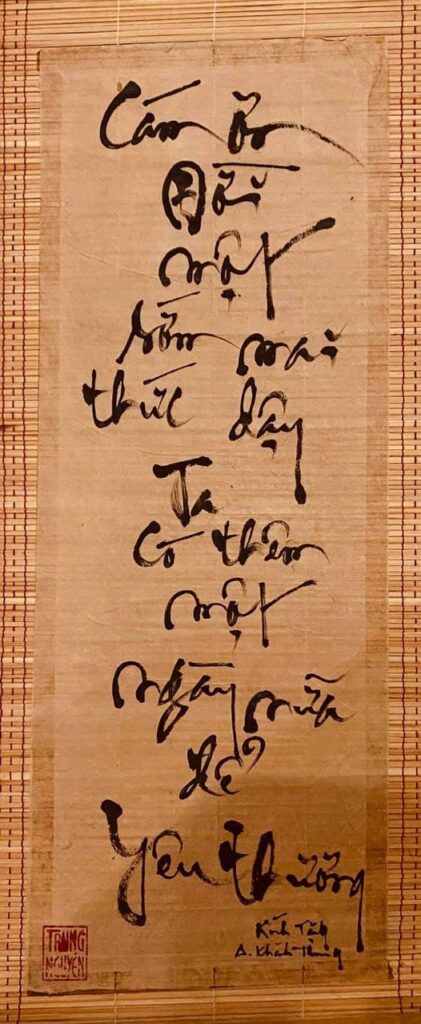 Cám ơn
Đời
một
sớm mai
thức dậy
Ta
có thêm
một
ngày nữa
để
yêu thương
Kính Tặng
A. Khánh Hùng
TRUNG
NGUYEN